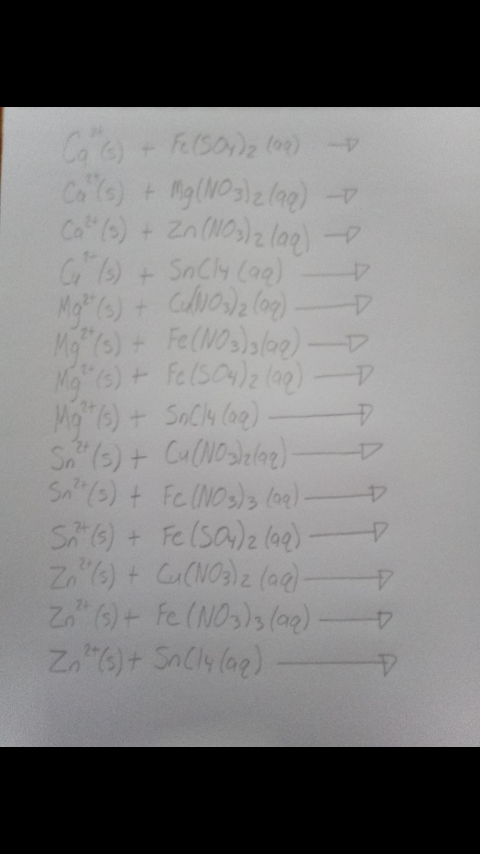 Ca²⁺(s) + Fe(SO4)2 (aq) →
Ca²⁺(s) + Mg(NO3)2 (aq) →
Ca²⁺(s) + Zn(NO3)2 (aq) →
Cu²⁺(s) + SnCl4 (aq) →
Mg²⁺(s) + Cu(NO3)2 (aq) →
Mg²⁺(s) + Fe(NO3)3 (aq) →
Mg²⁺(s) + Fe(SO4)2 (aq) →
Mg²⁺(s) + SnCl4 (aq) →
Sn²⁺(s) + Cu(NO3)2 (aq) →
Sn²⁺(s) + Fe(NO3)3 (aq) →
Sn²⁺(s) + Fe(SO4)2 (aq) →
Zn²⁺(s) + Cu(NO3)2 (aq) →
Zn²⁺(s) + Fe(NO3)3 (aq) →
Zn²⁺(s) + SnCl4 (aq) →